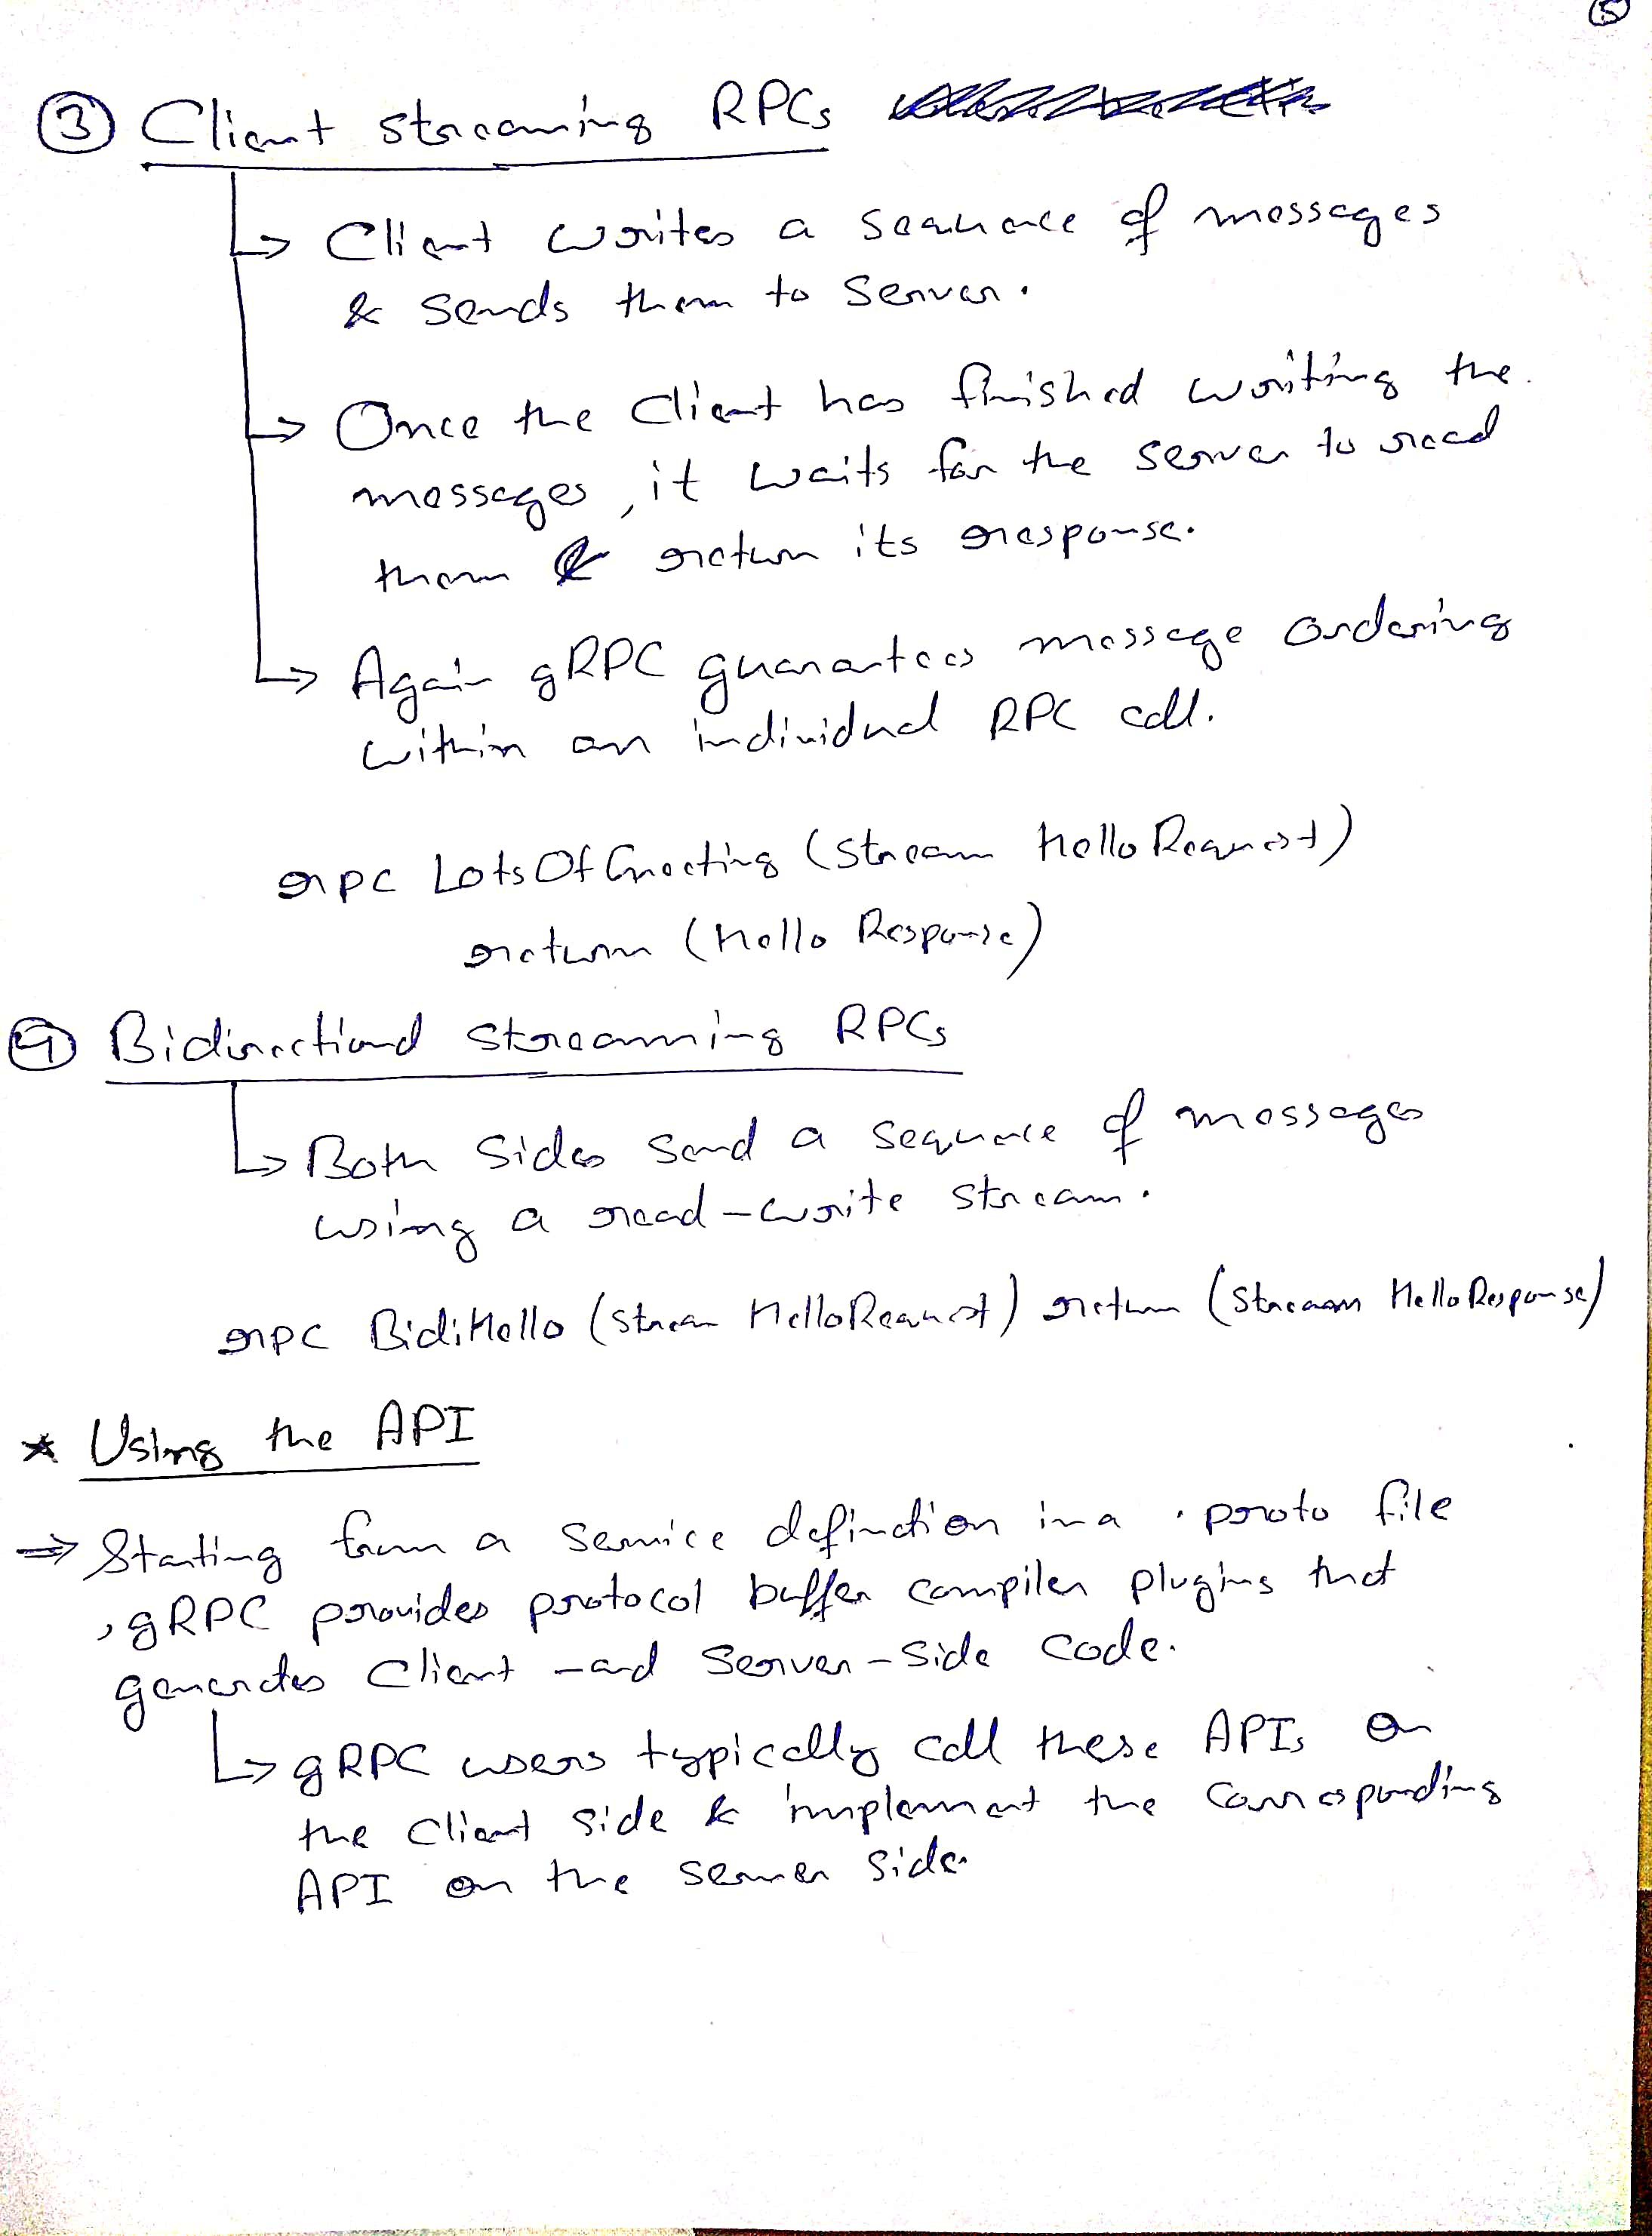 5
3 Client streaming RPCs
↳ Client writes a sequence of messages
& sends them to server.
↳ Once the client has finished writing the
messages, it waits for the server to read
them & return its response.
↳ Again gRPC guarantees message ordering
within an individual RPC call.
rpc LotsOfGreeting (stream HelloRequest)
return (HelloResponse)
4 Bidirectional streaming RPCs
↳ Both sides send a sequence of messages
using a read-write stream.
rpc BidiHello (stream HelloRequest) return (stream HelloResponse)
* Using the API
⇒ Starting from a service definction in a .proto file
, gRPC provides protocol buffer compiler plugins that
generates client -and server-side code.
↳ gRPC users typically call these APIs on
the client side & implement the corresponding
API on the server side.